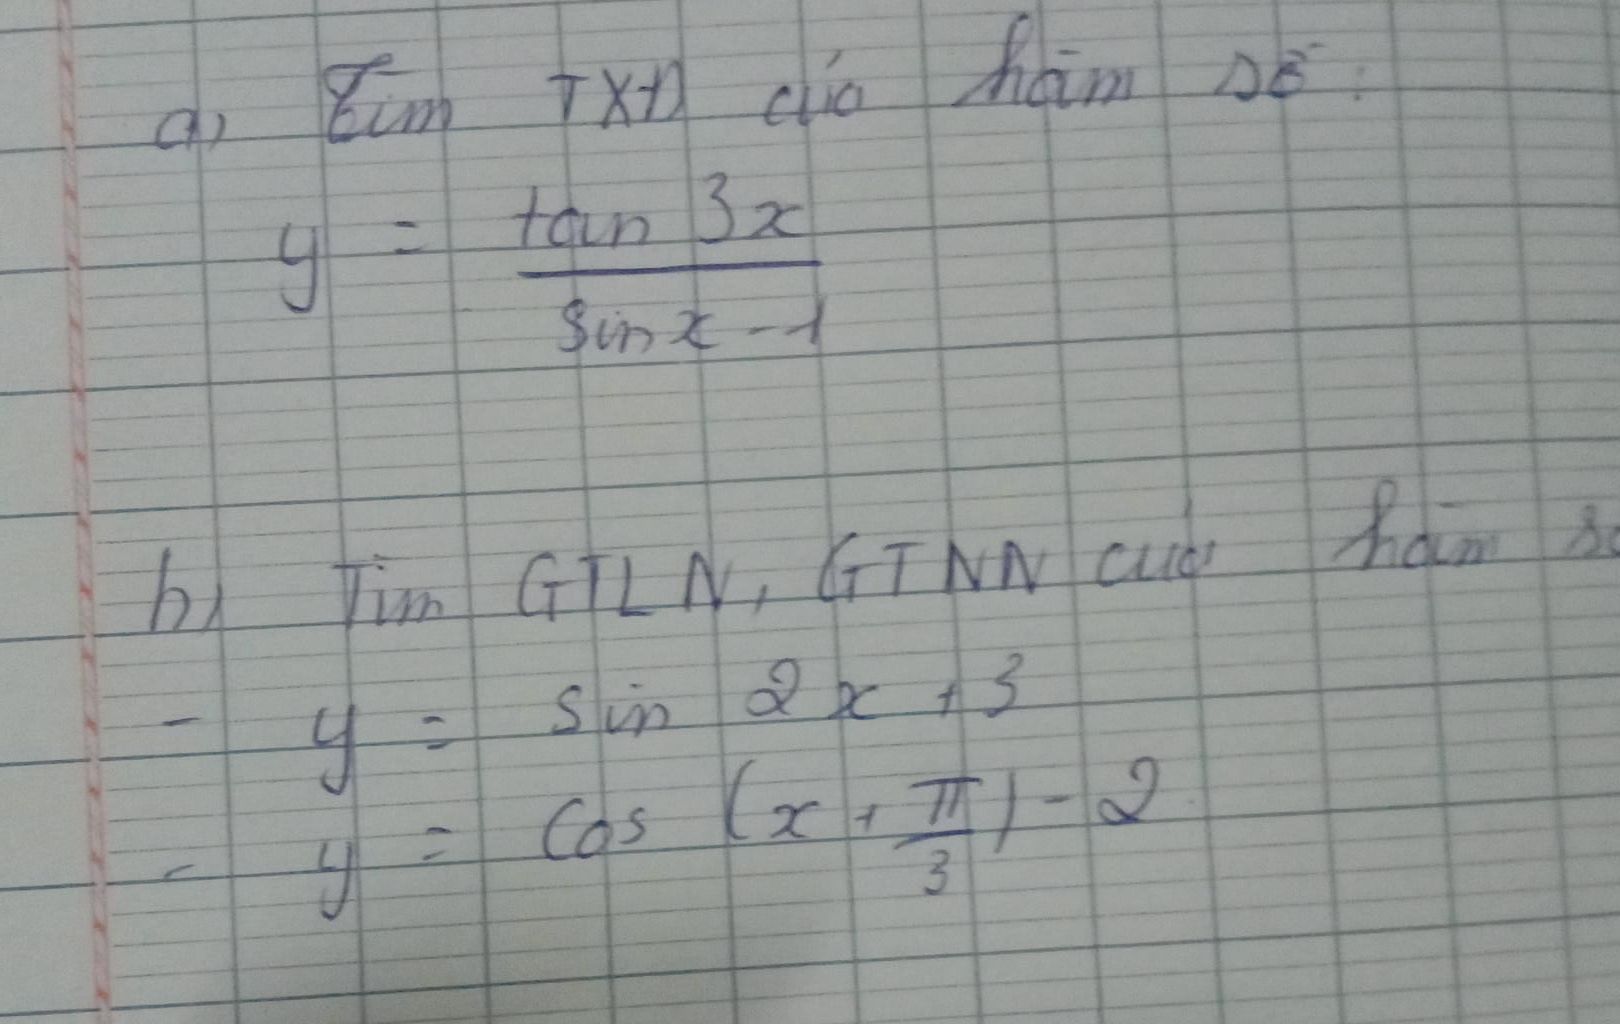 a) Tìm TXĐ của hàm số:
y = tan 3x / sin x - 1
b) Tìm GTLN, GTNN của hàm
- y = sin 2x + 3
- y = cos (x + π/3) - 2